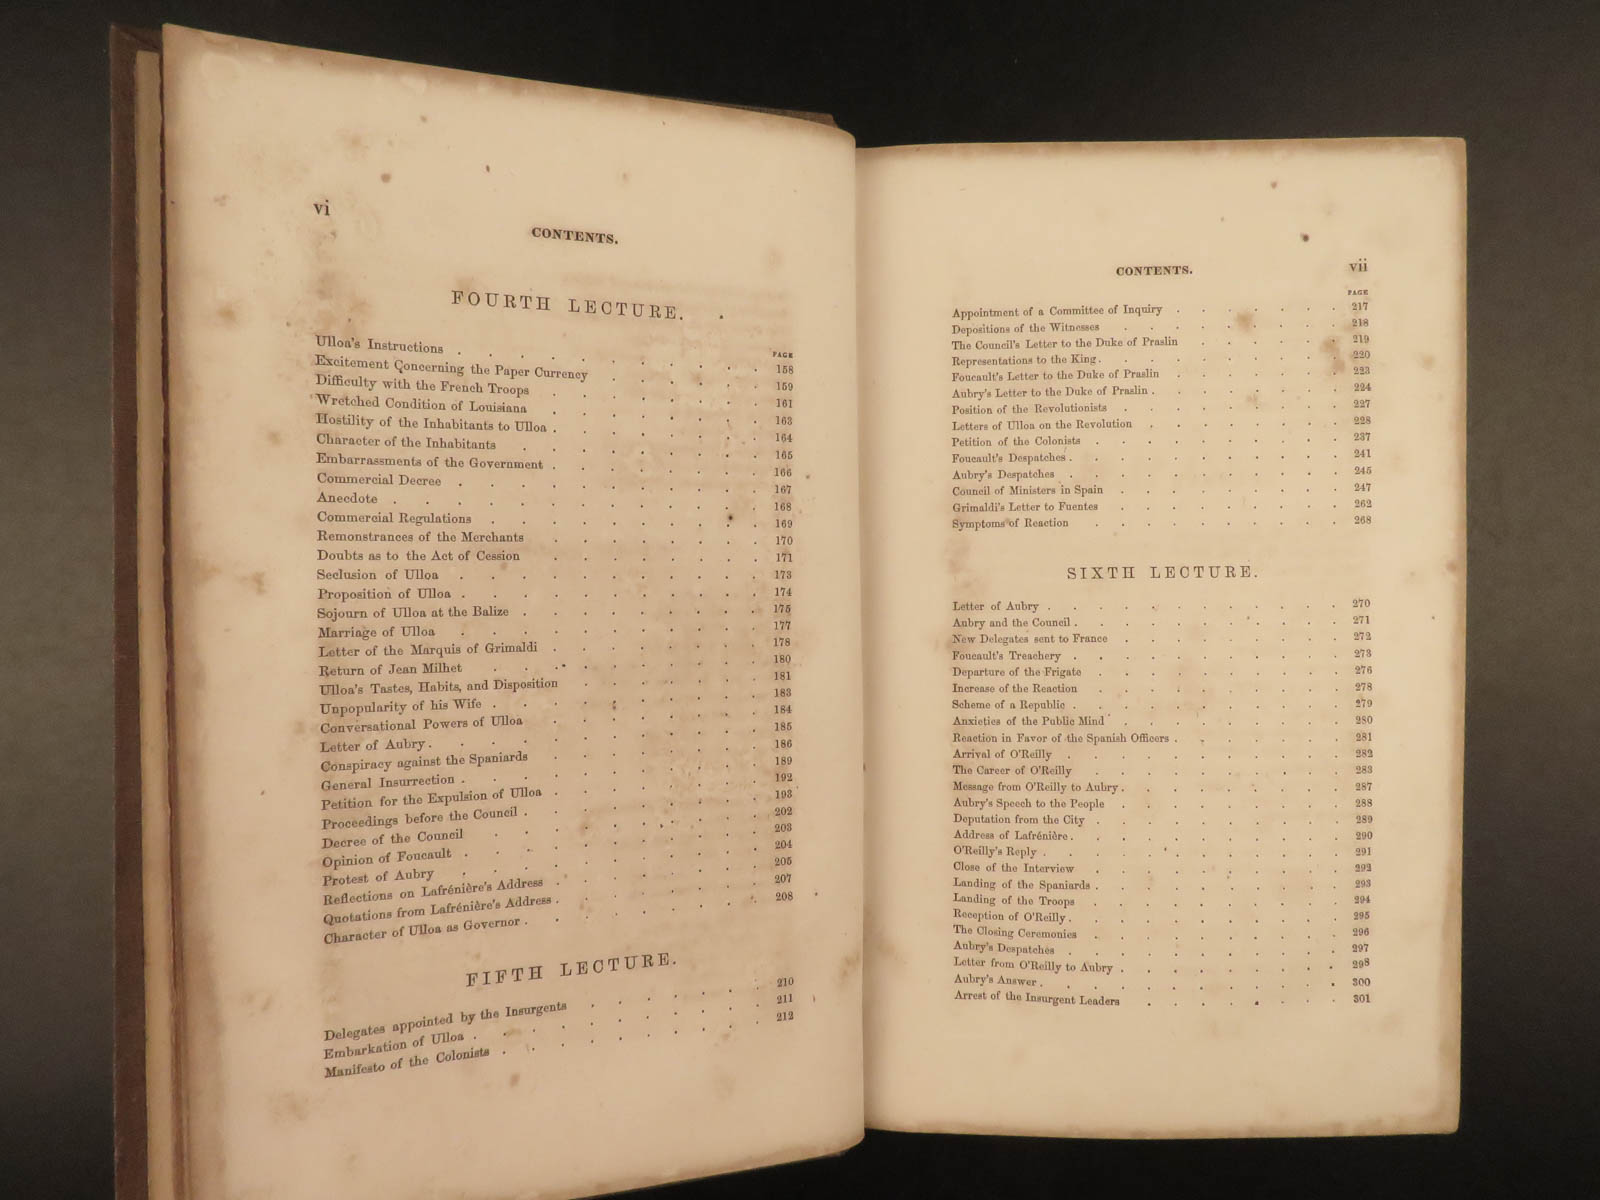 vi
CONTENTS.
FOURTH LECTURE.
PAGE
Ulloa's Instructions . . . . . . . . . . 158
Excitement Concerning the Paper Currency . . . . . 159
Difficulty with the French Troops . . . . . . . 161
Wretched Condition of Louisiana . . . . . . . 163
Hostility of the Inhabitants to Ulloa . . . . . . . 164
Character of the Inhabitants . . . . . . . . 165
Embarrassments of the Government . . . . . . . 166
Commercial Decree . . . . . . . . . . 167
Anecdote . . . . . . . . . . . . 168
Commercial Regulations . . . . . . . . . 169
Remonstrances of the Merchants . . . . . . . 170
Doubts as to the Act of Cession . . . . . . . 171
Seclusion of Ulloa . . . . . . . . . . 173
Proposition of Ulloa . . . . . . . . . . 174
Sojourn of Ulloa at the Balize . . . . . . . . 175
Marriage of Ulloa . . . . . . . . . . 177
Letter of the Marquis of Grimaldi . . . . . . . 178
Return of Jean Milhet . . . . . . . . . 180
Ulloa's Tastes, Habits, and Disposition . . . . . . 181
Unpopularity of his Wife . . . . . . . . . 183
Conversational Powers of Ulloa . . . . . . . 184
Letter of Aubry . . . . . . . . . . . 185
Conspiracy against the Spaniards . . . . . . . 186
General Insurrection . . . . . . . . . . 189
Petition for the Expulsion of Ulloa . . . . . . . 192
Proceedings before the Council . . . . . . . . 193
Decree of the Council . . . . . . . . . 202
Opinion of Foucault . . . . . . . . . . 203
Protest of Aubry . . . . . . . . . . 204
Reflections on Lafrénière's Address . . . . . . . 205
Quotations from Lafrénière's Address . . . . . . . 207
Character of Ulloa as Governor . . . . . . . . 208
FIFTH LECTURE.
Delegates appointed by the Insurgents . . . . . . 210
Embarkation of Ulloa . . . . . . . . . . 211
Manifesto of the Colonists . . . . . . . . . 212
CONTENTS.
vii
PAGE
Appointment of a Committee of Inquiry . . . . . . . 217
Depositions of the Witnesses . . . . . . . . . 218
The Council's Letter to the Duke of Praslin . . . . . . 219
Representations to the King . . . . . . . . . . 220
Foucault's Letter to the Duke of Praslin . . . . . . . 223
Aubry's Letter to the Duke of Praslin . . . . . . . . 224
Position of the Revolutionists . . . . . . . . . 227
Letters of Ulloa on the Revolution . . . . . . . . 228
Petition of the Colonists . . . . . . . . . . 237
Foucault's Despatches . . . . . . . . . . . 241
Aubry's Despatches . . . . . . . . . . . 245
Council of Ministers in Spain . . . . . . . . . 247
Grimaldi's Letter to Fuentes . . . . . . . . . 262
Symptoms of Reaction . . . . . . . . . . 268
SIXTH LECTURE.
Letter of Aubry . . . . . . . . . . . . 270
Aubry and the Council . . . . . . . . . . . 271
New Delegates sent to France . . . . . . . . . 272
Foucault's Treachery . . . . . . . . . . . 273
Departure of the Frigate . . . . . . . . . . 276
Increase of the Reaction . . . . . . . . . . 278
Scheme of a Republic . . . . . . . . . . . 279
Anxieties of the Public Mind . . . . . . . . . 280
Reaction in Favor of the Spanish Officers . . . . . . . 281
Arrival of O'Reilly . . . . . . . . . . . 282
The Career of O'Reilly . . . . . . . . . . 283
Message from O'Reilly to Aubry . . . . . . . . . 287
Aubry's Speech to the People . . . . . . . . . 288
Deputation from the City . . . . . . . . . . 289
Address of Lafrénière . . . . . . . . . . . 290
O'Reilly's Reply . . . . . . . . . . . . 291
Close of the Interview . . . . . . . . . . 292
Landing of the Spaniards . . . . . . . . . . 293
Landing of the Troops . . . . . . . . . . 294
Reception of O'Reilly . . . . . . . . . . . 295
The Closing Ceremonies . . . . . . . . . . 296
Aubry's Despatches . . . . . . . . . . . 297
Letter from O'Reilly to Aubry . . . . . . . . . 298
Aubry's Answer . . . . . . . . . . . . 300
Arrest of the Insurgent Leaders . . . . . . . . 301